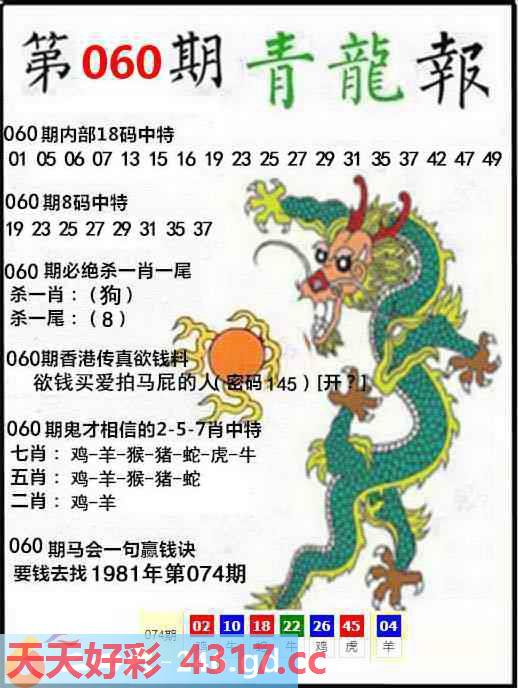 第060期青龍報
060期内部18码中特
01 05 06 07 13 15 16 19 23 25 27 29 31 35 37 42 47 49
060期8码中特
19 23 25 27 29 31 35 37
060期必绝杀一肖一尾
杀一肖：(狗)
杀一尾：(8)
060期香港传真欲钱料
欲钱买爱拍马屁的人(密码145)[开？]
060期鬼才相信的2-5-7肖中特
七肖：鸡-羊-猴-猪-蛇-虎-牛
五肖：鸡-羊-猴-猪-蛇
二肖：鸡-羊
060期马会一句赢钱诀
要钱去找1981年第074期
074期 02 10 18 22 26 45 04
鸡 牛 牛 鸡 虎 羊
天天好彩 4317.cc